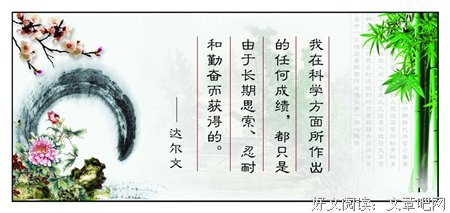 我在科学方面所作出
的任何成绩，都只是
由于长期思索、忍耐
和勤奋而获得的。
——达尔文
好文阅读：文章吧网